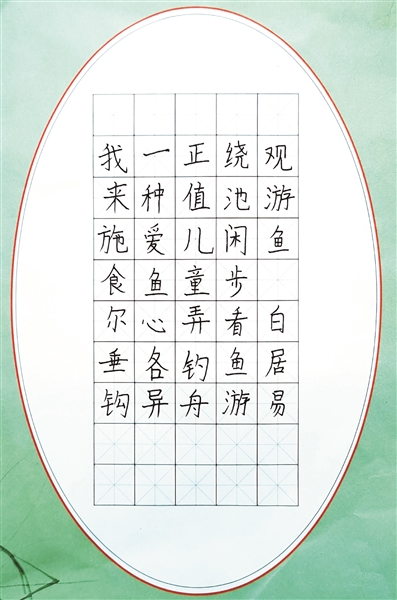 观游鱼 白居易
绕池闲步看鱼游
正值儿童弄钓舟
一种爱鱼心各异
我来施食尔垂钩